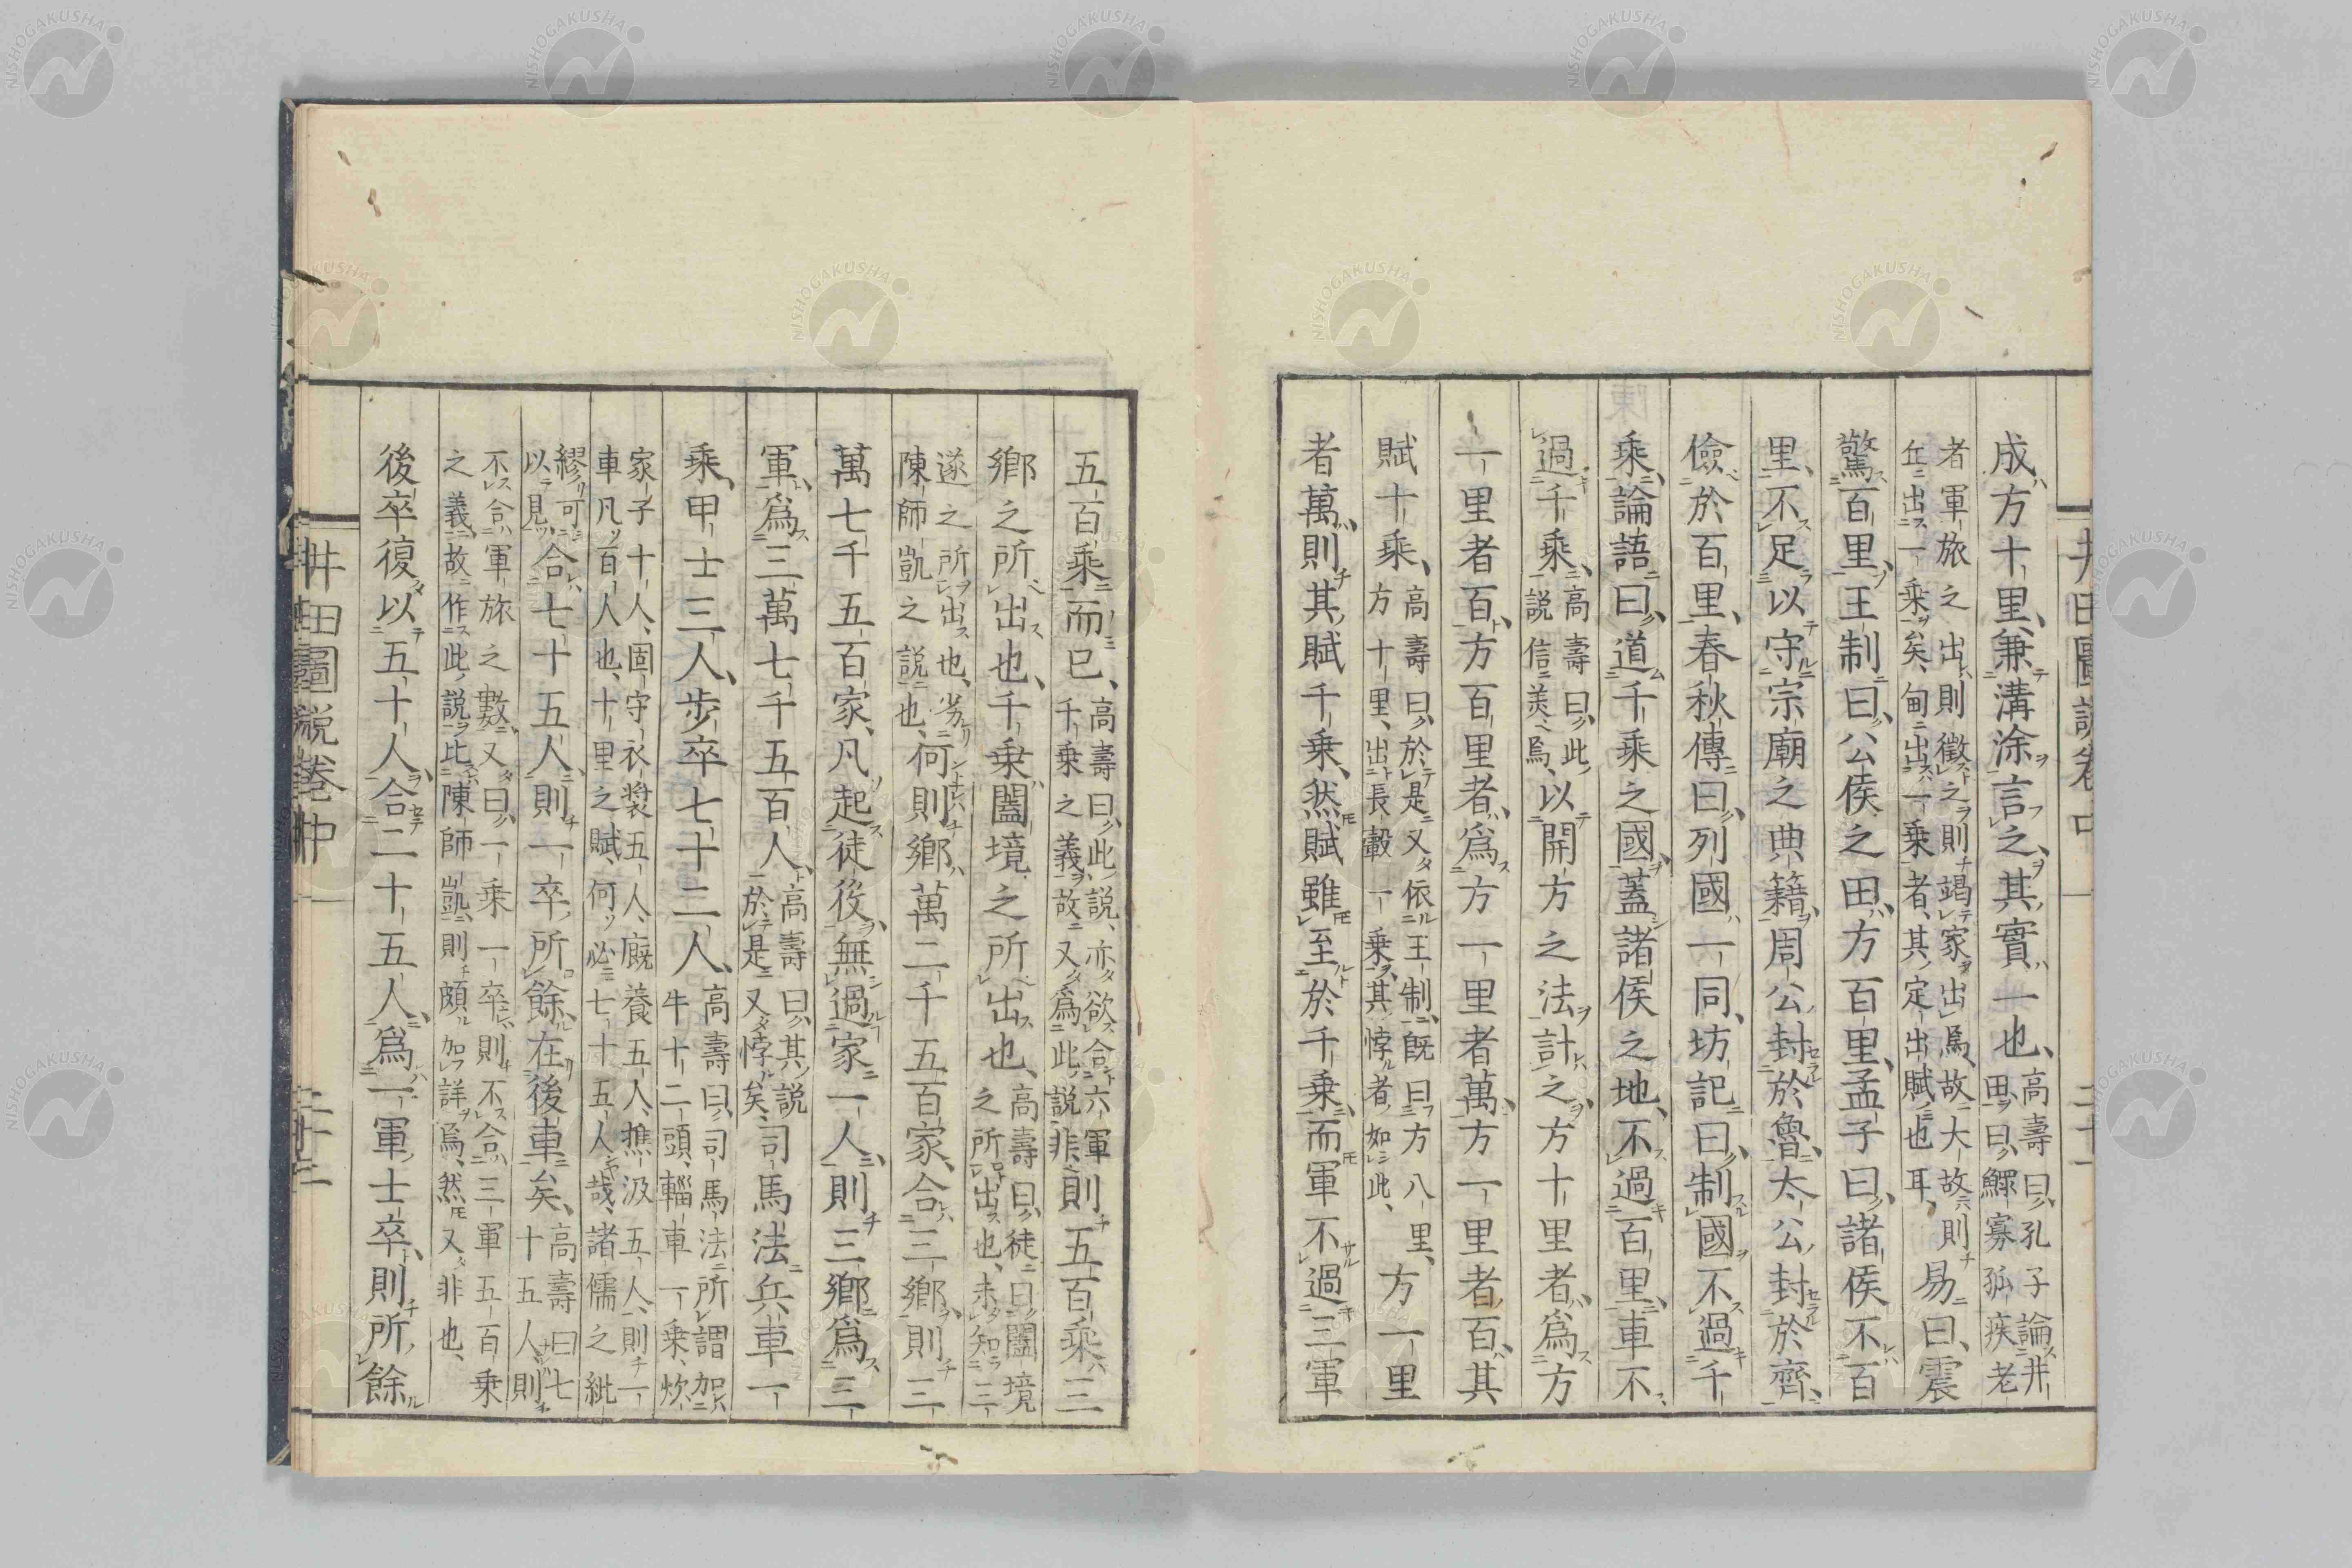 井田圖説卷中 二十一
成方十里、兼溝涂言之、其實一也、高壽曰、孔子論井
田曰、鰥寡孤疾老
者軍旅之出則徵之則竭家出馬、故大故則
丘出一乘矣、甸出一乘者、其定出賦也耳、易曰、震
驚百里、王制曰、公侯之田、方百里、孟子曰、諸侯不百
里、不足以守宗廟之典籍、周公封於魯、太公封於齊、
儉於百里、春秋傳曰、列國一同、坊記曰、制國不過千
乘、論語曰、道千乘之國、蓋諸侯之地、不過百里、車不
過千乘、高壽曰、此
説信美焉、以開方之法計之、方十里者、爲方
一里者百、方百里者、爲方一里者萬、方一里者百、其
賦十乘、高壽曰、於是又依王制、既曰方八里、
方十里、出長轂一乘、其悖者、如此、方一里
者萬、則其賦千乘、然賦雖至於千乘、而軍不過三軍
五百乘而已、高壽曰、此説、亦欲合六軍
千乘之義、故又爲此説、非則五百乘三
鄉之所出也、千乘闔境之所出也、高壽曰、徒曰闔境
之所出也、未知三
遂之所出也、劣
陳師凱之説也、何則鄉萬二千五百家、合三鄉、則三
萬七千五百家、凡起徒役、無過家一人、則三鄉爲三
軍、爲三萬七千五百人、高壽曰、其説
於是又悖矣、司馬法、兵車一
乘、甲士三人、步卒七十二人、高壽曰、司馬法所謂加
牛十二頭、輜車一乘、炊
家子十人、固守衣裝五人、廐養五人、樵汲五人、則一
車凡百人也、十里之賦、何必七十五人哉、諸儒之紕
繆可
以見、合七十五人、則一卒所餘在後車矣、高壽曰七
十五人、則
不合軍旅之數、又曰、一乘一卒、則不合三軍五百乘
之義、故作此説、比陳師凱、則頗加詳焉、然又非也、
後卒復以五十人、合二十五人、爲一軍、士卒、則所餘
井田圖説卷中 二十二